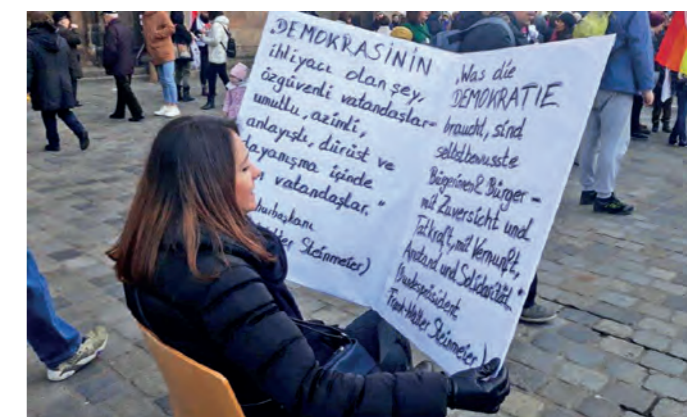 „DEMOKRASİNİN
ihtiyacı olan şey,
özgüvenli vatandaşlar-
umutlu, azimli,
anlayışlı, dürüst ve
dayanışma içinde
vatandaşlar."
Steinmeier)
„Was die
DEMOKRATIE
braucht, sind
selbstbewusste
Bürgerinnen & Bürger –
mit Zuversicht und
Tatkraft, mit Vernunft,
Anstand und Solidarität."
(Bundespräsident
Frank-Walter Steinmeier)